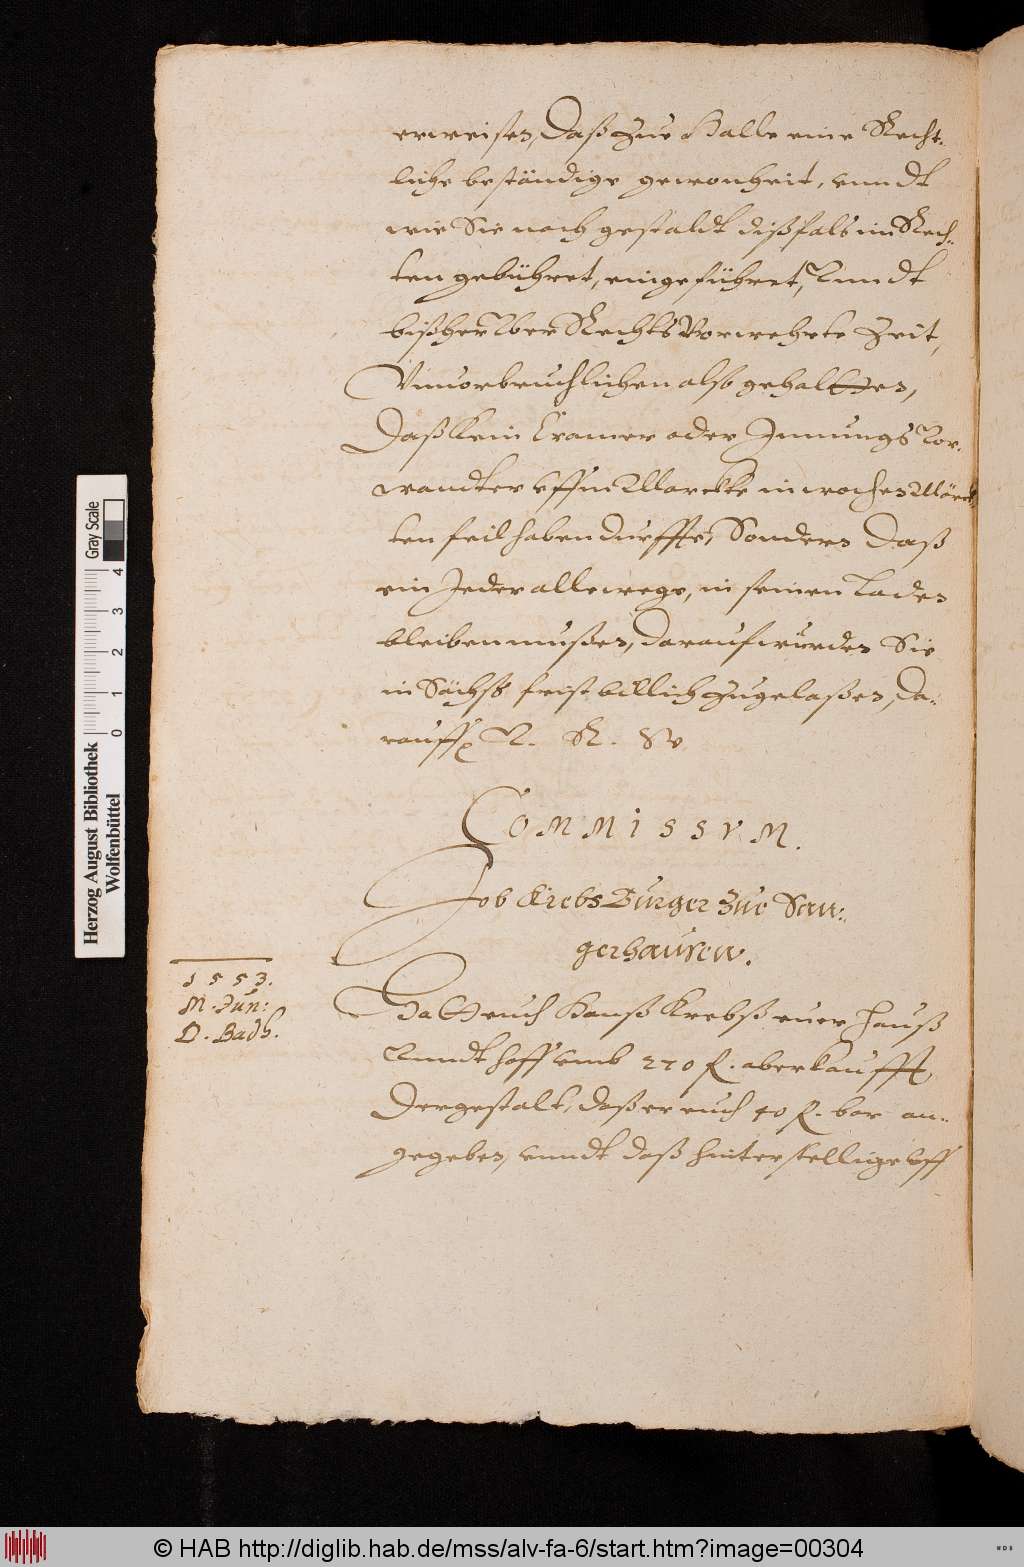 erweisen, daß zue Halle eine Recht-
liche beständige gewonheit, vnndt
wie Sie nach gestaldt dißfals im Rech-
ten gebühret, eingeführet, Vnndt
bißher vber Rechts Vorwehrte Zeit,
Vnuorbruchlichen also gehaltten,
Daß kein Cramer oder Innungs Vor-
wandter vffm Marckte in wochen Märck-
ten feil haben durffte, Sondern daß
ein Jeder allewege, in seinen Laden
bleiben mußen, darauf würden Sie
in Sächß frist billich zugelaßen, da-
rauff V. R. W
COMMISSVM.
Job Krebs Burger zue San-
gerhausen.
1553.
M. Jun:
D. Badh.
Hatt euch Hanß Krebß euer hauß
Vnndt hoff vmb 270 fl. aberkaufft
Dergestalt, daß er euch 40 fl. bar an-
gegeben, vnndt daß hinterstellige vff
Herzog August Bibliothek
Wolfenbüttel
0 1 2 3 4
Gray Scale
© HAB http://diglib.hab.de/mss/alv-fa-6/start.htm?image=00304
WDB